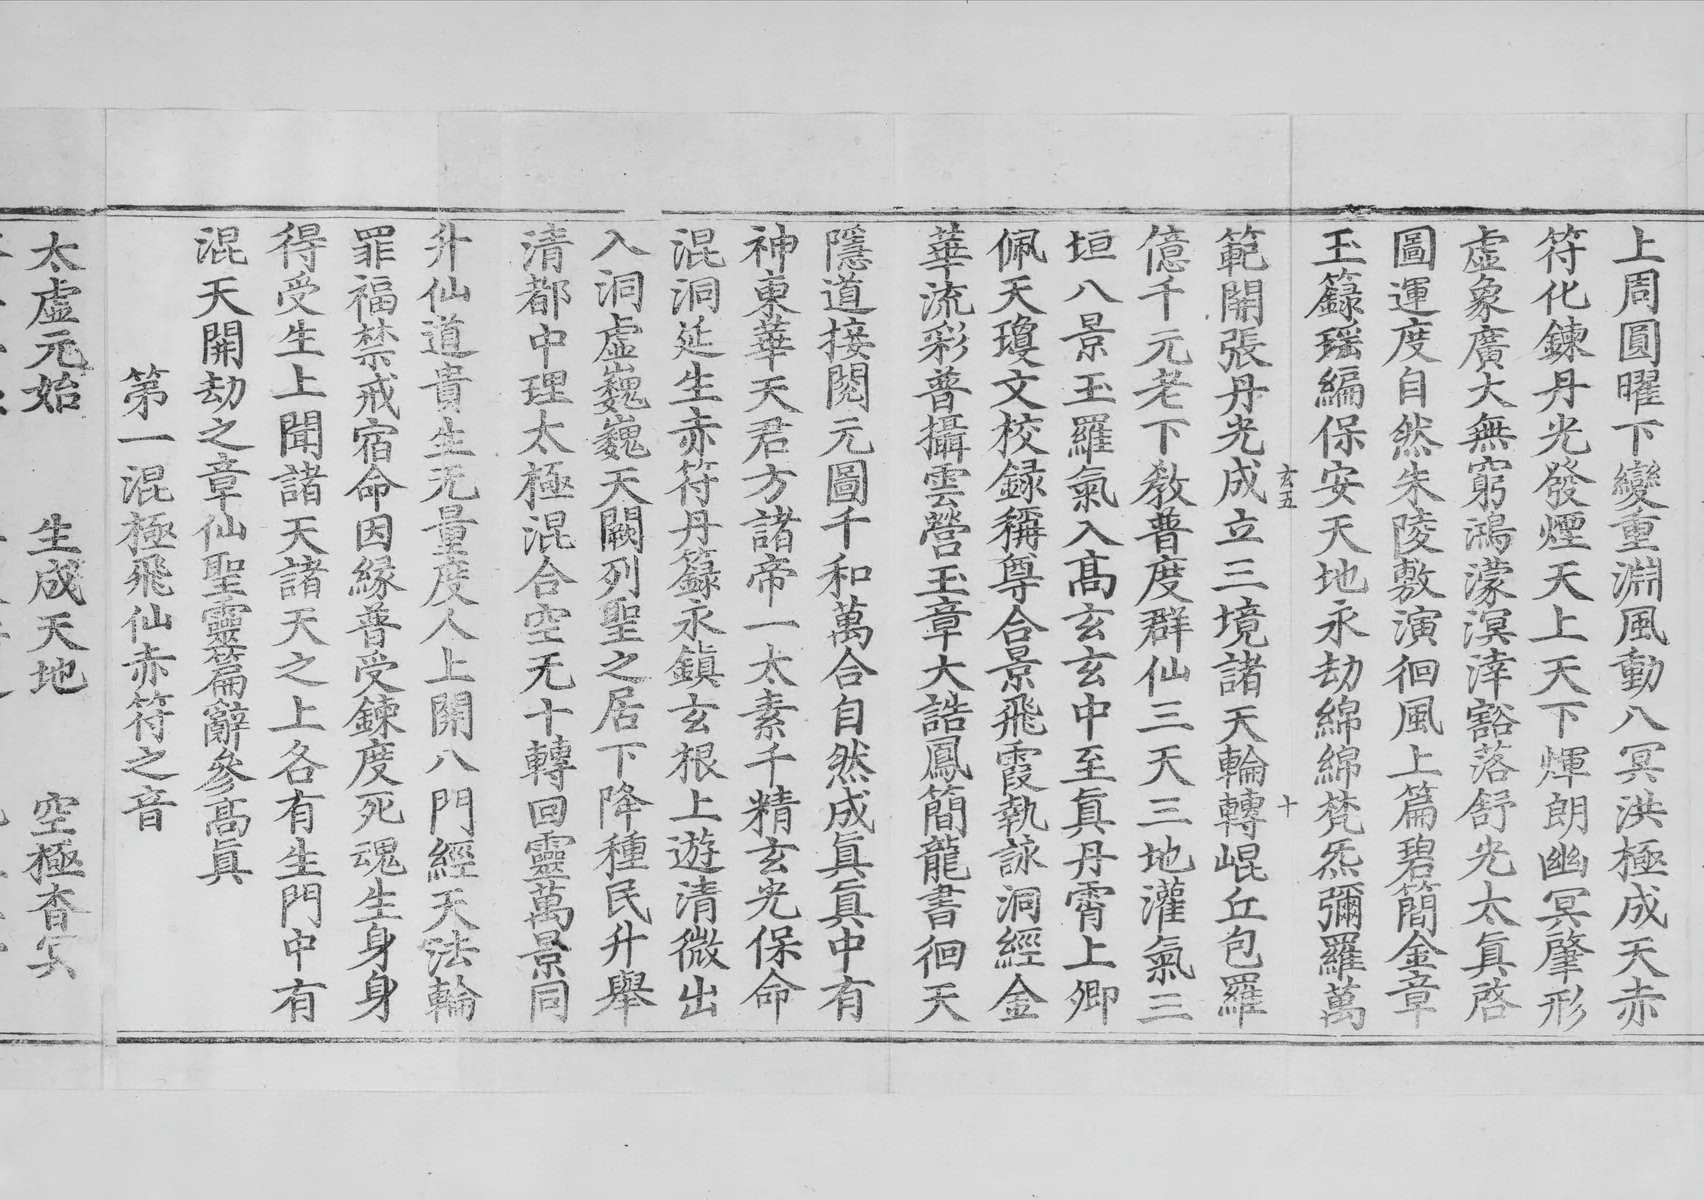 上周圓曜下變重淵風動八冥洪極成天赤
符化鍊丹光發煙天上天下煇朗幽冥肇形
虛象廣大無窮鴻濛溟滓豁落舒光太眞啓
圖運度自然朱陵敷演徊風上篇碧簡金章
玉籙瑶編保安天地永劫綿綿梵炁彌羅萬
範開張丹光成立三境諸天輪轉崐丘包羅
玄五 十
億千元老下教普度群仙三天三地灌氣三
垣八景玉羅氣入髙玄玄中至眞丹霄上卿
佩天瓊文校録稱尊合景飛霞執詠洞經金
華流彩普攝雲營玉章大誥鳳簡龍書徊天
隱道接閱元圖千和萬合自然成眞眞中有
神東華天君方諸帝一太素千精玄光保命
混洞延生赤符丹籙永鎮玄根上遊清微出
入洞虛巍巍天闕列聖之居下降種民升舉
清都中理太極混合空无十轉回靈萬景同
升仙道貴生无量度人上開八門經天法輪
罪福禁戒宿命因緣普受鍊度死魂生身身
得受生上聞諸天諸天之上各有生門中有
混天開劫之章仙聖靈篇辭參髙眞
第一混極飛仙赤符之音
太虛元始 生成天地 空極杳冥